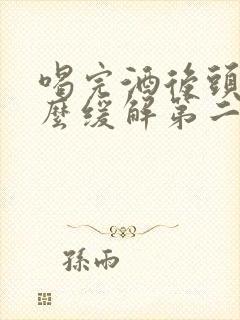 喝完酒後頭
麼緩解第二
孫雨